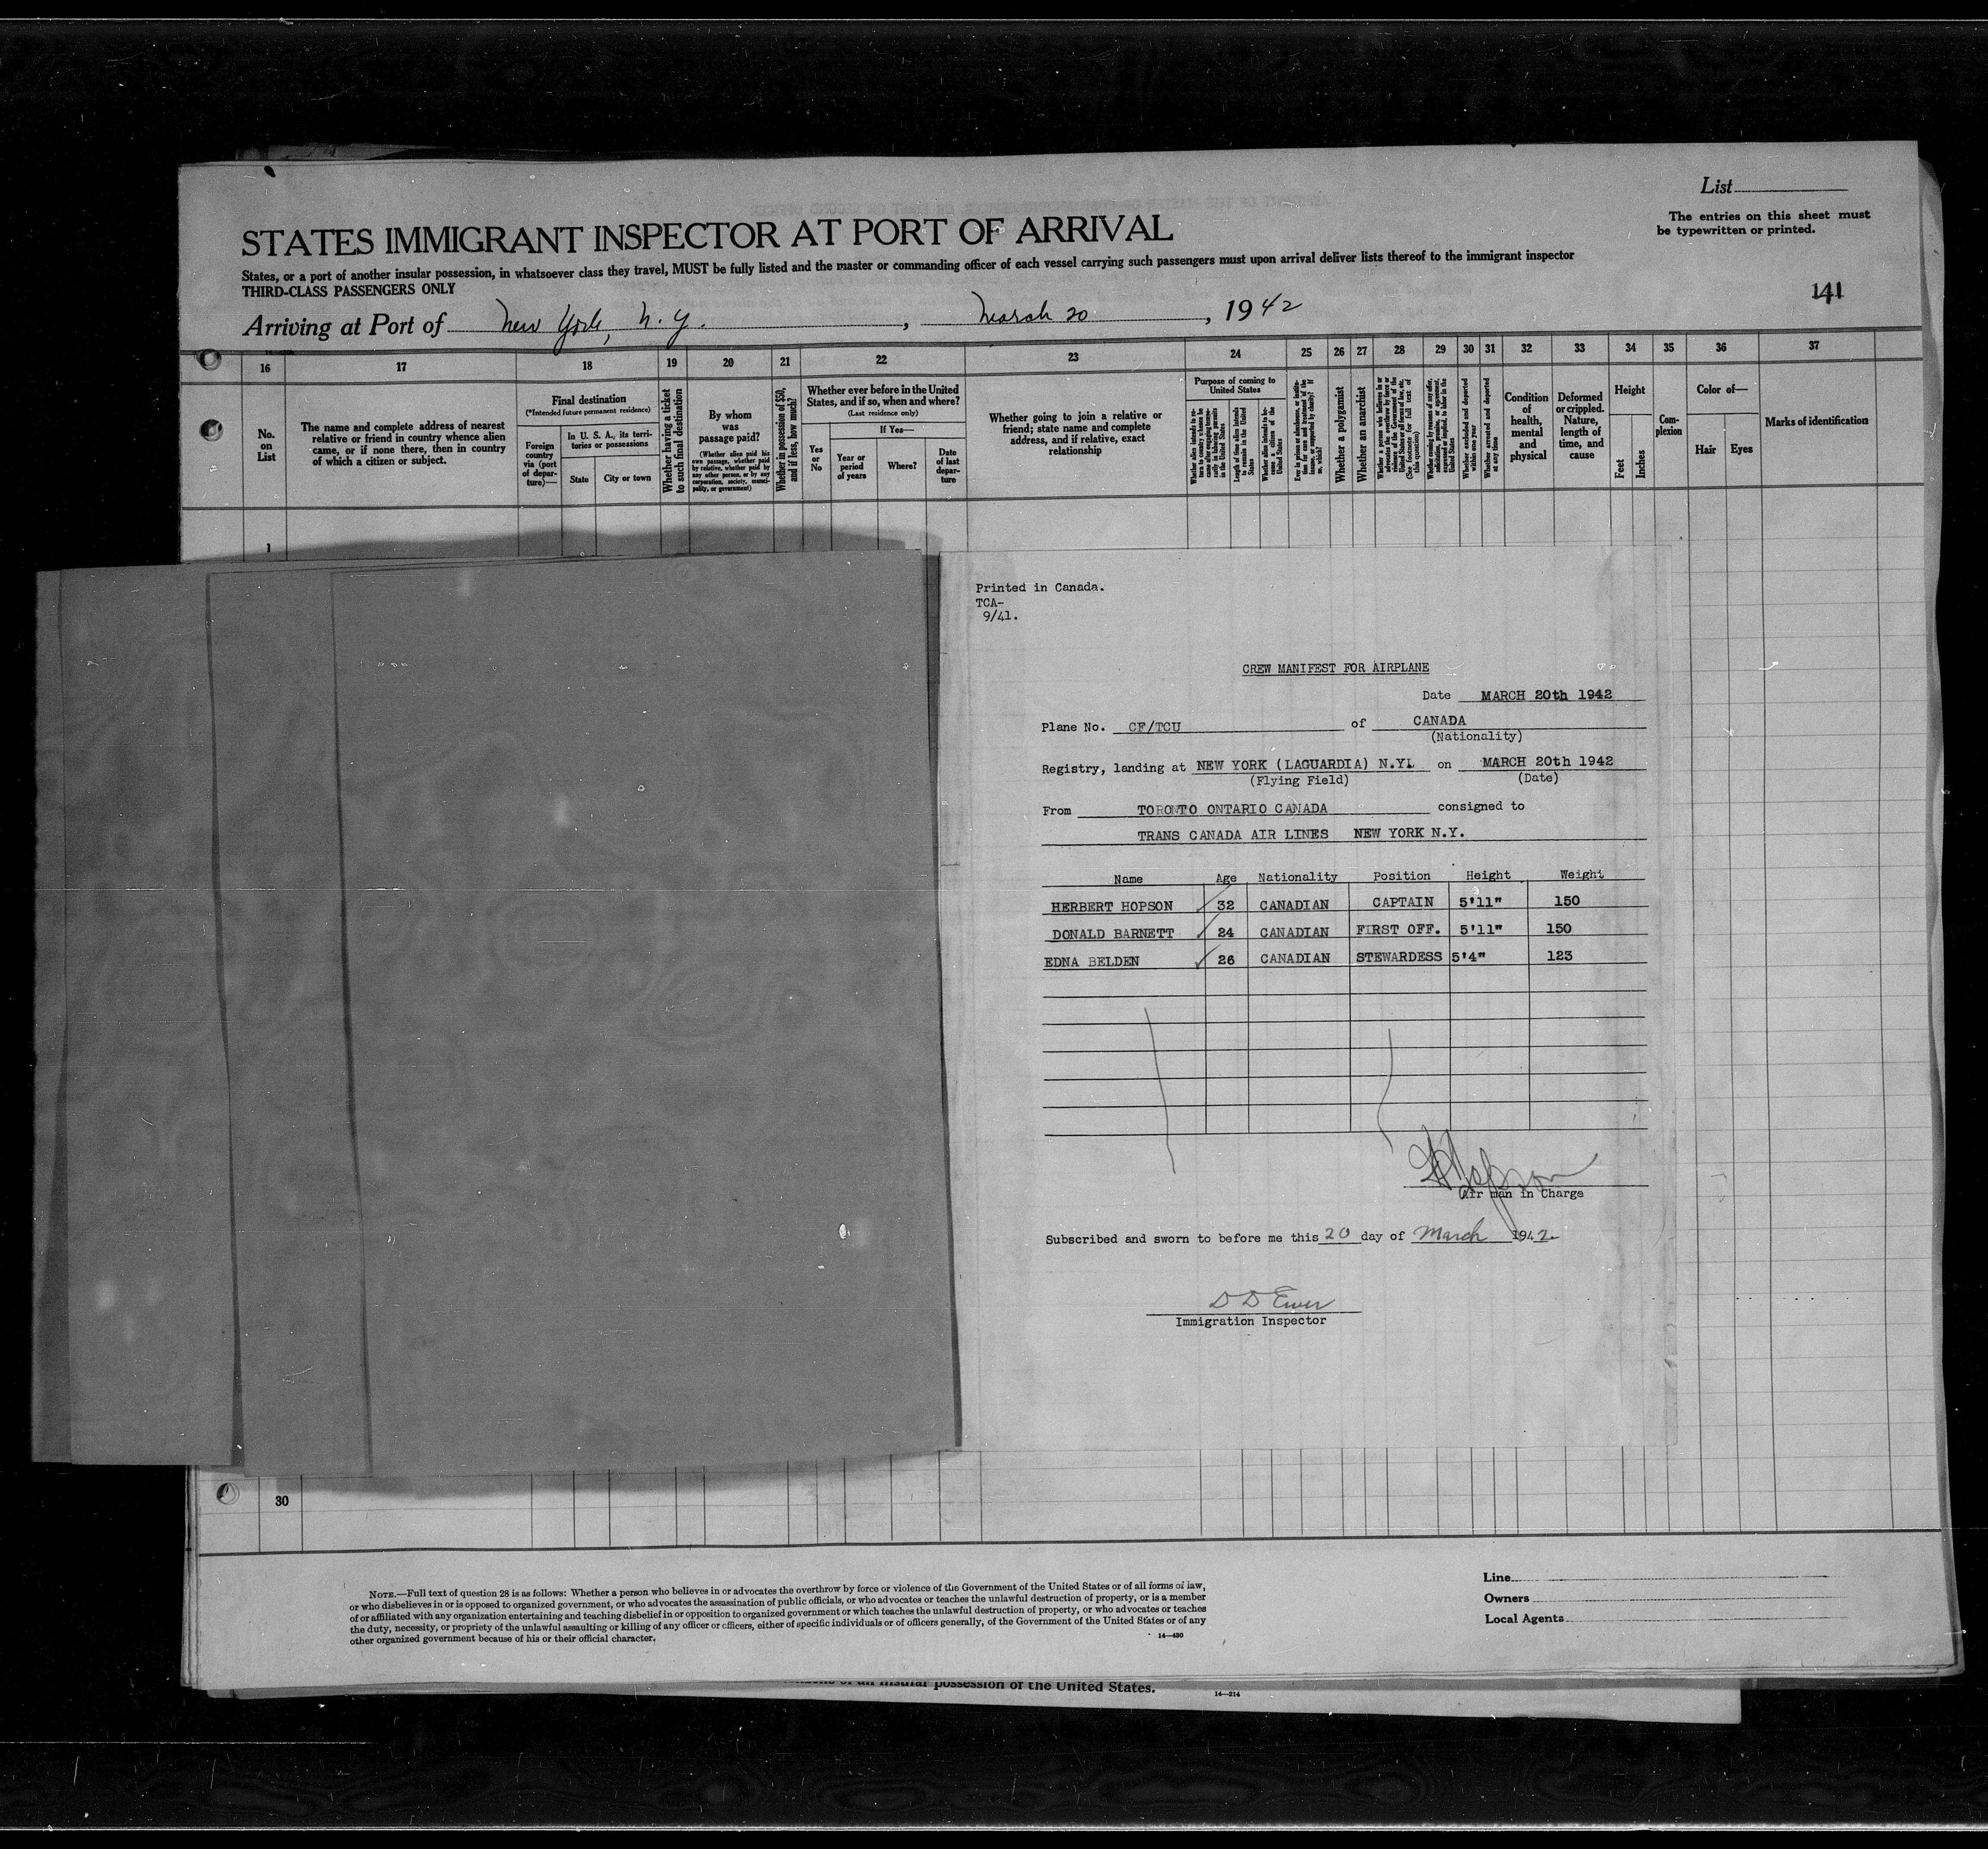 List
The entries on this sheet must
be typewritten or printed.
STATES IMMIGRANT INSPECTOR AT PORT OF ARRIVAL
States, or a port of another insular possession, in whatsoever class they travel, MUST be fully listed and the master or commanding officer of each vessel carrying such passengers must upon arrival deliver lists thereof to the immigrant inspector
THIRD-CLASS PASSENGERS ONLY
141
Arriving at Port of New York, N. Y. , March 20 , 1942
16 17 18 19 20 21 22 23 24 25 26 27 28 29 30 31 32 33 34 35 36 37
No.
on
List
The name and complete address of nearest
relative or friend in country whence alien
came, or if none there, then in country
of which a citizen or subject.
Final destination
(*Intended future permanent residence)
Foreign
country
via (port
of depar-
ture)—
In U. S. A., its terri-
tories or possessions
State
City or town
Whether having a ticket
to such final destination
By whom
was
passage paid?
(Whether alien paid his
own passage, whether paid
by relative, whether paid by
any other person, or by any
corporation, society, munici-
pality, or government)
Whether in possession of $50,
and if less, how much?
Whether ever before in the United
States, and if so, when and where?
(Last residence only)
Yes
or
No
If Yes—
Year or
period
of years
Where?
Date
of last
depar-
ture
Whether going to join a relative or
friend; state name and complete
address, and if relative, exact
relationship
Purpose of coming to
United States
Whether alien intends to re-
turn to country whence he
came after engaging tempo-
rarily in laboring pursuits
in the United States
Length of time alien intends
to remain in the United
States
Whether alien intends to be-
come a citizen of the
United States
Whether a polygamist
Whether an anarchist
Whether excluded and deported
within one year
Whether arrested and deported
at any time
Condition
of
health,
mental
and
physical
Deformed
or crippled.
Nature,
length of
time, and
cause
Height
Feet
Inches
Com-
plexion
Color of—
Hair
Eyes
Marks of identification
1
Printed in Canada.
TCA-
9/41.
CREW MANIFEST FOR AIRPLANE
Date MARCH 20th 1942
Plane No. CF/TCU of CANADA
(Nationality)
Registry, landing at NEW YORK (LAGUARDIA) N.Y. on MARCH 20th 1942
(Flying Field) (Date)
From TORONTO ONTARIO CANADA consigned to
TRANS CANADA AIR LINES NEW YORK N.Y.
Name Age Nationality Position Height Weight
HERBERT HOPSON 32 CANADIAN CAPTAIN 5'11" 150
DONALD BARNETT 24 CANADIAN FIRST OFF. 5'11" 150
EDNA BELDEN 26 CANADIAN STEWARDESS 5'4" 123
H Hopson
Air man in Charge
Subscribed and sworn to before me this 20 day of March 1942.
D D Ewer
Immigration Inspector
30
NOTE.—Full text of question 28 is as follows: Whether a person who believes in or advocates the overthrow by force or violence of the Government of the United States or of all forms of law,
or who disbelieves in or is opposed to organized government, or who advocates the assassination of public officials, or who advocates or teaches the unlawful destruction of property, or is a member
of or affiliated with any organization entertaining and teaching disbelief in or opposition to organized government or which teaches the unlawful destruction of property, or who advocates or teaches
the duty, necessity, or propriety of the unlawful assaulting or killing of any officer or officers, either of specific individuals or of officers generally, of the Government of the United States or of any
other organized government because of his or their official character.
14—430
Line
Owners
Local Agents
possession of the United States.
14—214